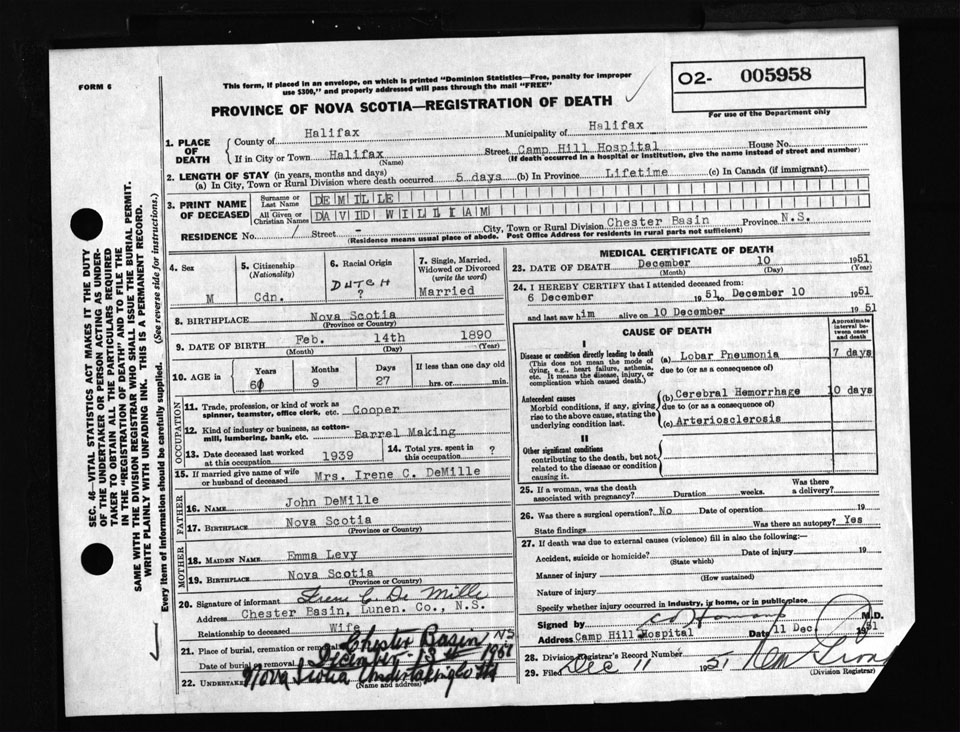 FORM 6
This form, if placed in an envelope, on which is printed "Dominion Statistics—Free, penalty for improper
use $300," and properly addressed will pass through the mail "FREE"
O2- 005958
For use of the Department only
PROVINCE OF NOVA SCOTIA—REGISTRATION OF DEATH
1. PLACE OF DEATH
County of Halifax Municipality of Halifax
If in City or Town Halifax Street Camp Hill Hospital House No.
(Name) (If death occurred in a hospital or institution, give the name instead of street and number)
2. LENGTH OF STAY (in years, months and days)
(a) In City, Town or Rural Division where death occurred 5 days (b) In Province Lifetime (c) In Canada (if immigrant)
3. PRINT NAME OF DECEASED
Surname or Last Name DEMILLE
All Given or Christian Names DAVID WILLIAM
RESIDENCE No. / Street - City, Town or Rural Division Chester Basin Province N.S.
(Residence means usual place of abode. Post Office Address for residents in rural parts not sufficient)
4. Sex
M
5. Citizenship (Nationality)
Cdn.
6. Racial Origin
DUTCH
?
7. Single, Married, Widowed or Divorced (write the word)
Married
8. BIRTHPLACE Nova Scotia
(Province or Country)
9. DATE OF BIRTH Feb. 14th 1890
(Month) (Day) (Year)
10. AGE in
Years Months Days If less than one day old
9 27 hrs. or min.
OCCUPATION
11. Trade, profession, or kind of work as
spinner, teamster, office clerk, etc. Cooper
12. Kind of industry or business, as cotton-
mill, lumbering, bank, etc. Barrel Making
13. Date deceased last worked
at this occupation 1939
14. Total yrs. spent in
this occupation ?
15. If married give name of wife
or husband of deceased Mrs. Irene C. DeMille
FATHER
16. NAME John DeMille
17. BIRTHPLACE Nova Scotia
(Province or Country)
MOTHER
18. MAIDEN NAME Emma Levy
19. BIRTHPLACE Nova Scotia
(Province or Country)
20. Signature of informant Irene C. De Mille
Address Chester Basin, Lunen. Co., N.S.
Relationship to deceased Wife
21. Place of burial, cremation or removal Chester Basin NS
Date of burial or removal December 13th 1951
22. UNDERTAKER Nova Scotia Undertaking Co Ltd
(Name and address)
MEDICAL CERTIFICATE OF DEATH
23. DATE OF DEATH December 10 1951
(Month) (Day) (Year)
24. I HEREBY CERTIFY that I attended deceased from:
6 December 1951 to December 10 1951
and last saw him alive on 10 December 1951
CAUSE OF DEATH
Approximate interval between onset and death
I
Disease or condition directly leading to death
(This does not mean the mode of
dying, e.g., heart failure, asthenia,
etc. It means the disease, injury, or
complication which caused death.)
(a) Lobar Pneumonia 7 days
due to (or as a consequence of)
Antecedent causes
Morbid conditions, if any, giving
rise to the above cause, stating the
underlying condition last.
(b) Cerebral Hemorrhage 10 days
due to (or as a consequence of)
(c) Arteriosclerosis
II
Other significant conditions
contributing to the death, but not
related to the disease or condition
causing it.
25. If a woman, was the death
associated with pregnancy? Duration weeks. Was there
a delivery?
26. Was there a surgical operation? No Date of operation 19
State findings Was there an autopsy? Yes
27. If death was due to external causes (violence) fill in also the following:—
Accident, suicide or homicide? Date of injury 19
(State which)
Manner of injury
(How sustained)
Nature of injury
Specify whether injury occurred in industry, in home, or in public place
Signed by M.D.
Address Camp Hill Hospital Date 11 Dec. 1951
28. Division Registrar's Record Number
29. Filed Dec 11 1951
(Division Registrar)
SEC. 46—VITAL STATISTICS ACT MAKES IT THE DUTY
OF THE UNDERTAKER OR PERSON ACTING AS UNDER-
TAKER TO OBTAIN ALL THE PARTICULARS REQUIRED
IN THE "REGISTRATION OF DEATH" AND TO FILE THE
SAME WITH THE DIVISION REGISTRAR WHO SHALL ISSUE THE BURIAL PERMIT.
WRITE PLAINLY WITH UNFADING INK. THIS IS A PERMANENT RECORD.
Every item of information should be carefully supplied. (See reverse side for instructions.)